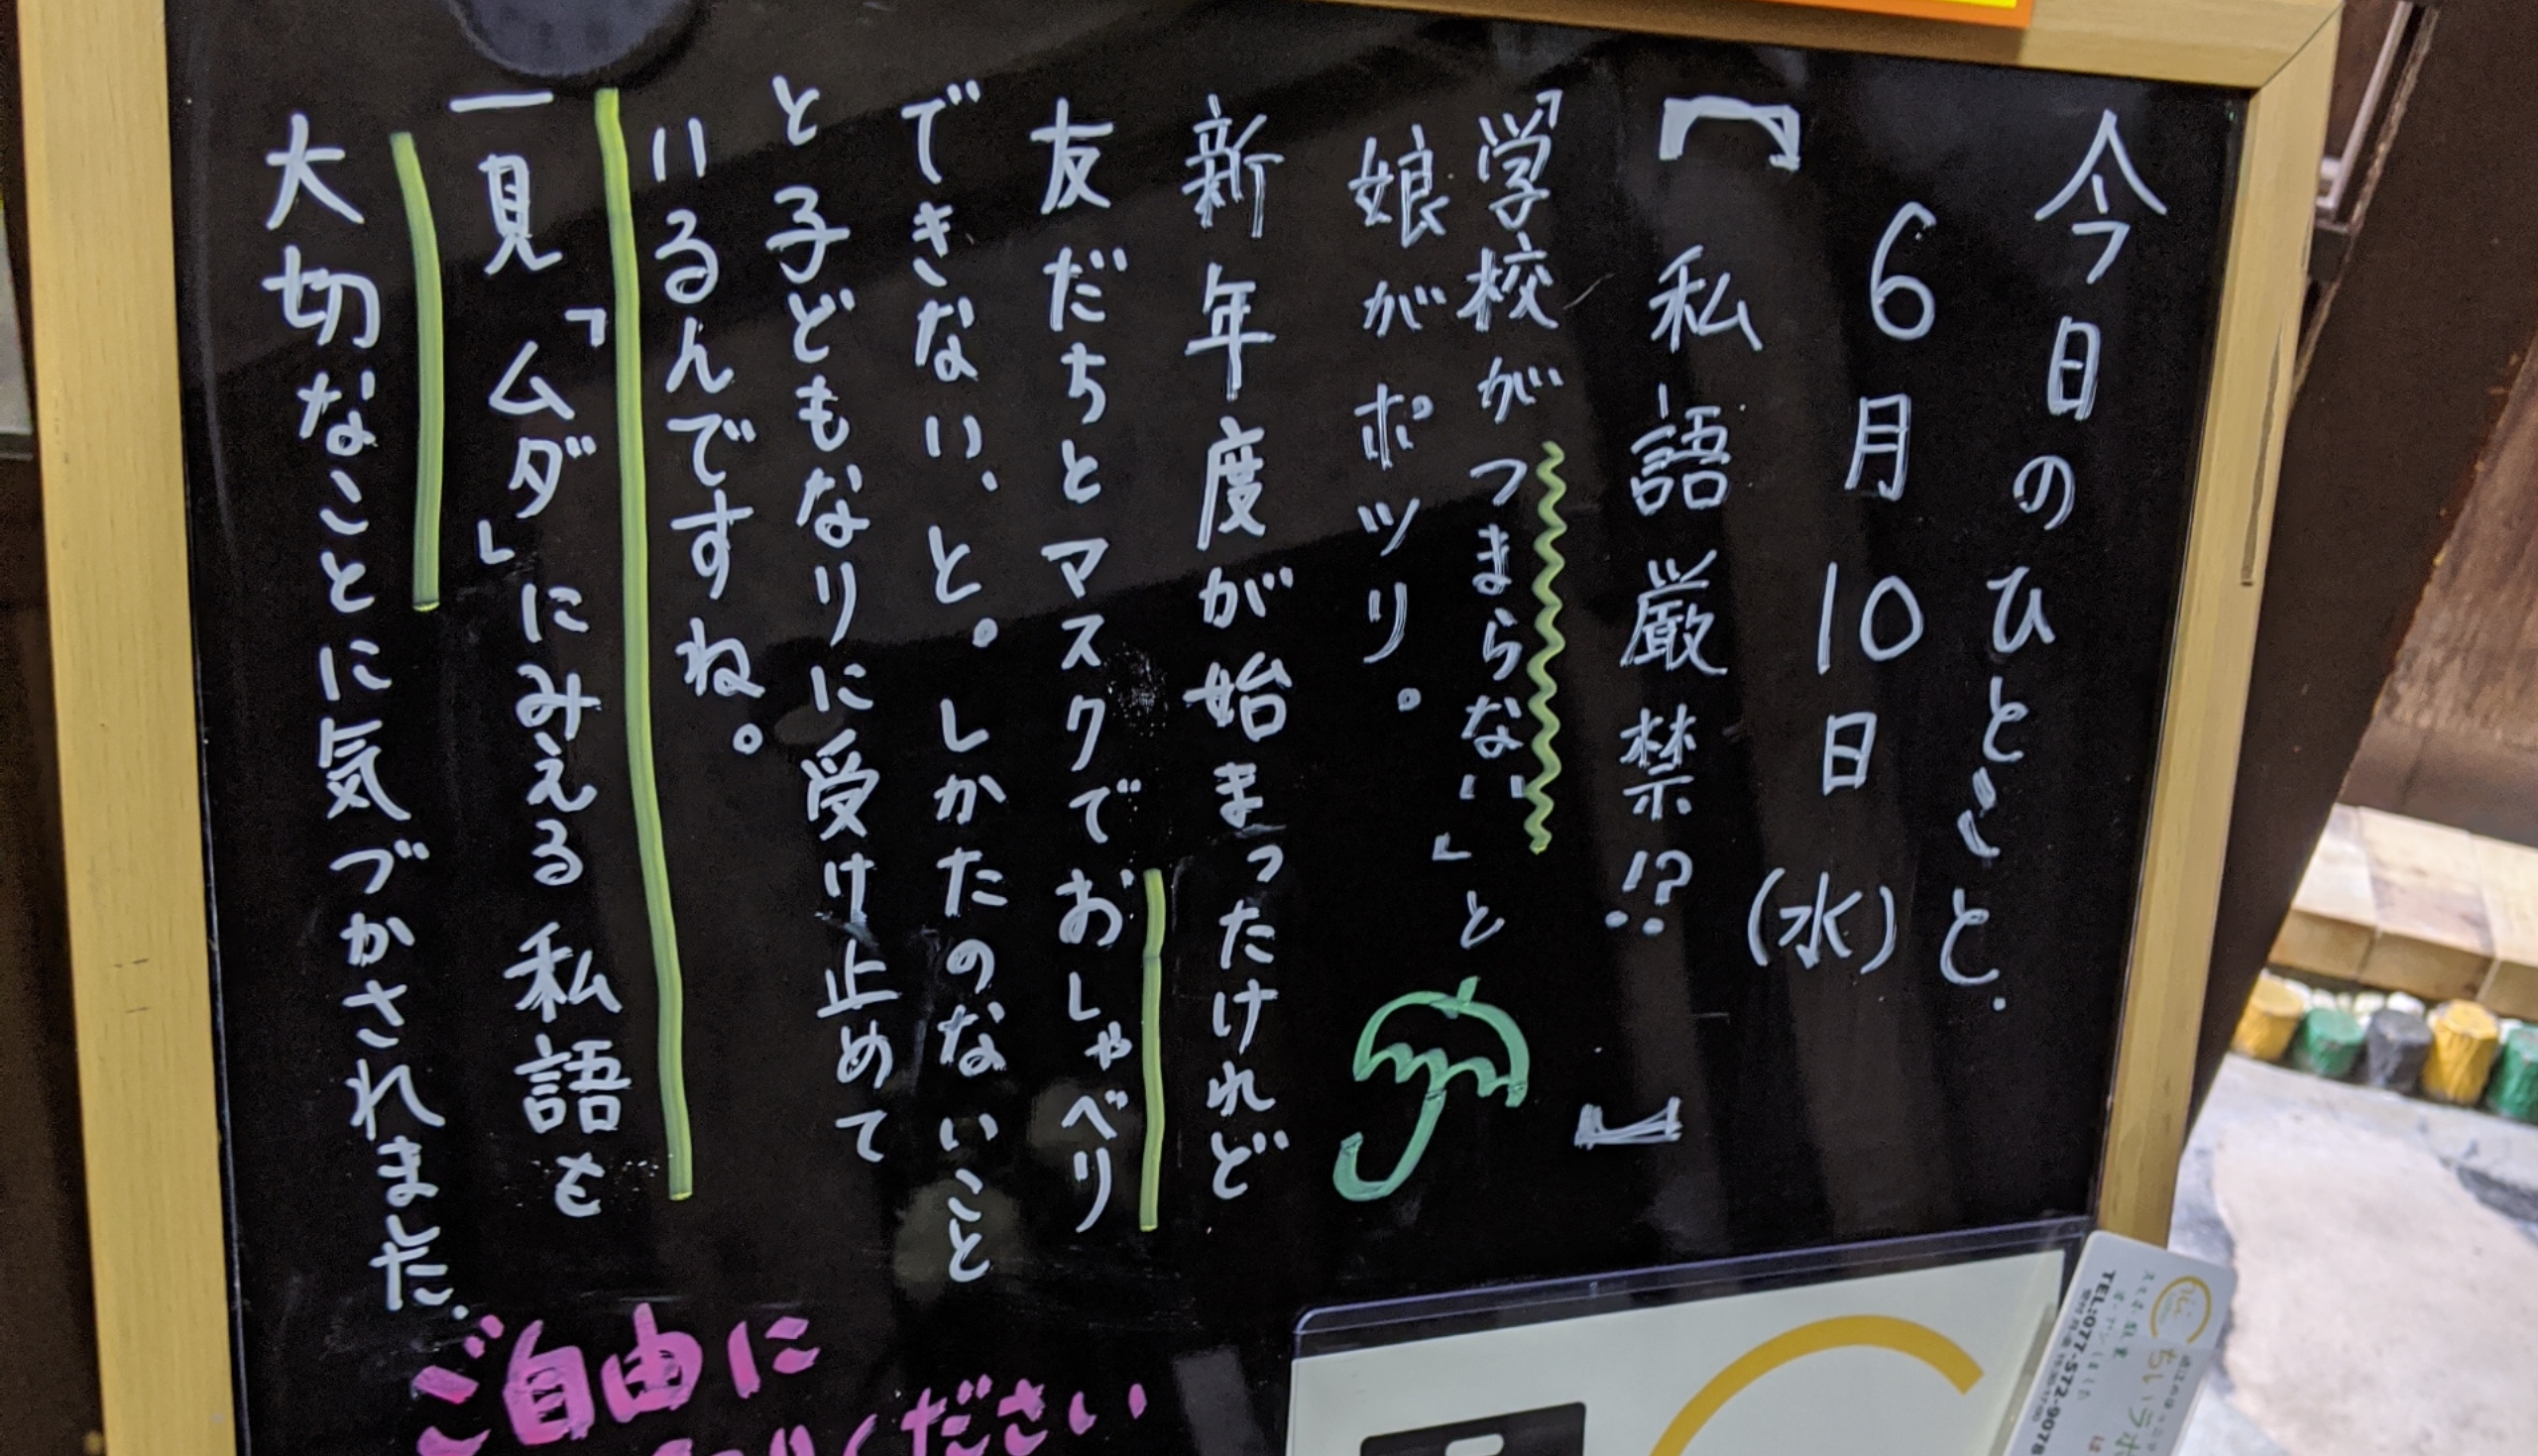 今日のひとこと.
6月10日(水)
【私語厳禁!?】
「学校がつまらない」と
娘がポツリ。
新年度が始まったけれど
友だちとマスクでおしゃべり
できない、と。しかたのないこと
と子どもなりに受け止めて
いるんですね。
一見「ムダ」にみえる私語を
大切なことに気づかされました.
ご自由に
ください
TEL:077-572-9078